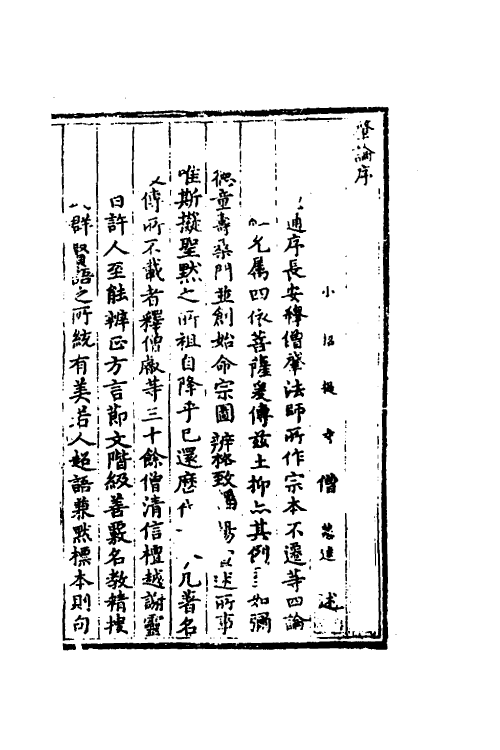 肇論序
小招提寺僧慧達述
通序長安釋僧肇法師所作宗本不遷等四論
允屬四依菩薩爰傳茲土抑亦其例 如彌
童壽桑門並創始命宗圖辨格致 揚 述所事
唯斯擬聖默之所祖自降乎已還歷代 凡著名
傳所不載者釋僧叡等三十餘僧清信檀越謝靈
曰許人至能辨正方言節文階級善覈名教精搜
群賢語之所統有美若人超語兼默標本則句